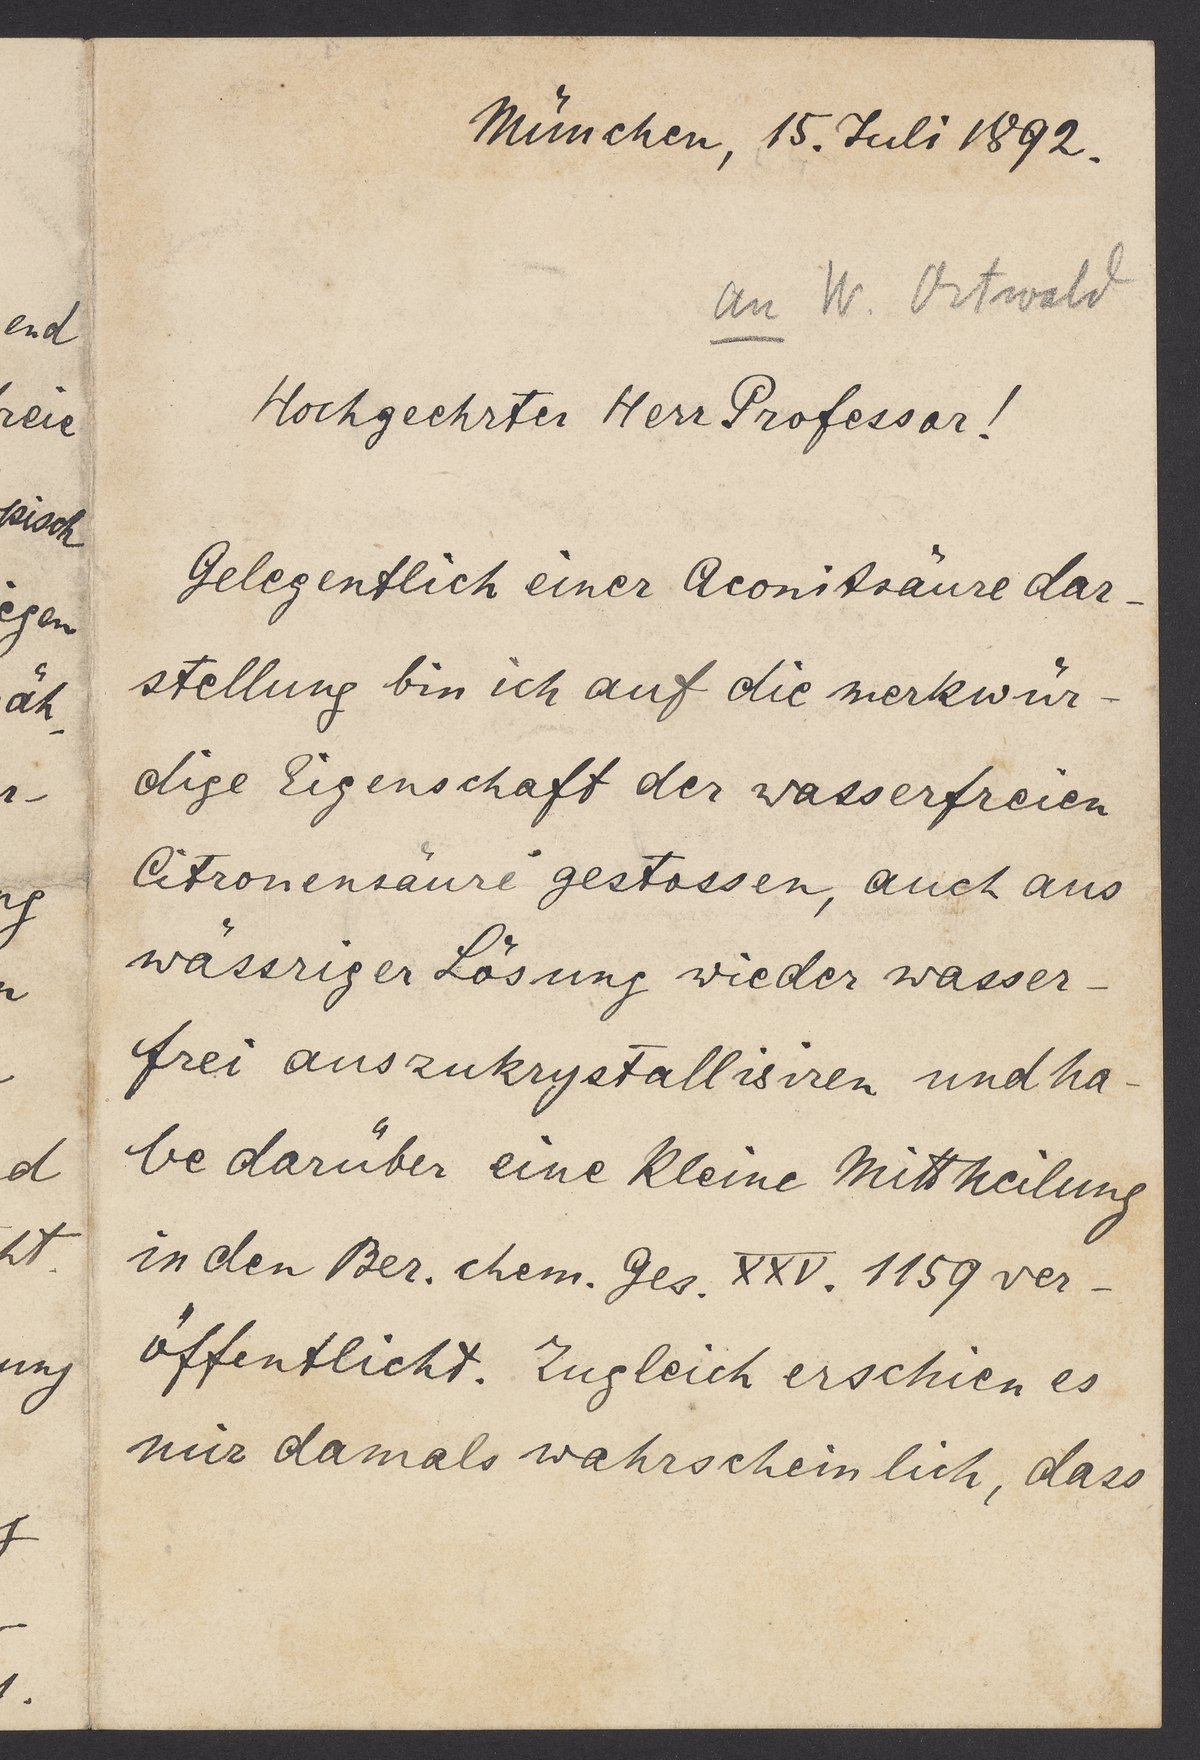 München, 15. Juli 1892.
an W. Ostwald
Hochgeehrter Herr Professor!
Gelegentlich einer Aconitsäuredar-
stellung bin ich auf die merkwür-
dige Eigenschaft der wasserfreien
Citronensäure gestossen, auch aus
wässriger Lösung wieder wasser-
frei auszukrystallisiren und ha-
be darüber eine kleine Mittheilung
in den Ber. chem. Ges. XXV. 1159 ver-
öffentlicht. Zugleich erschien es
mir damals wahrscheinlich, dass